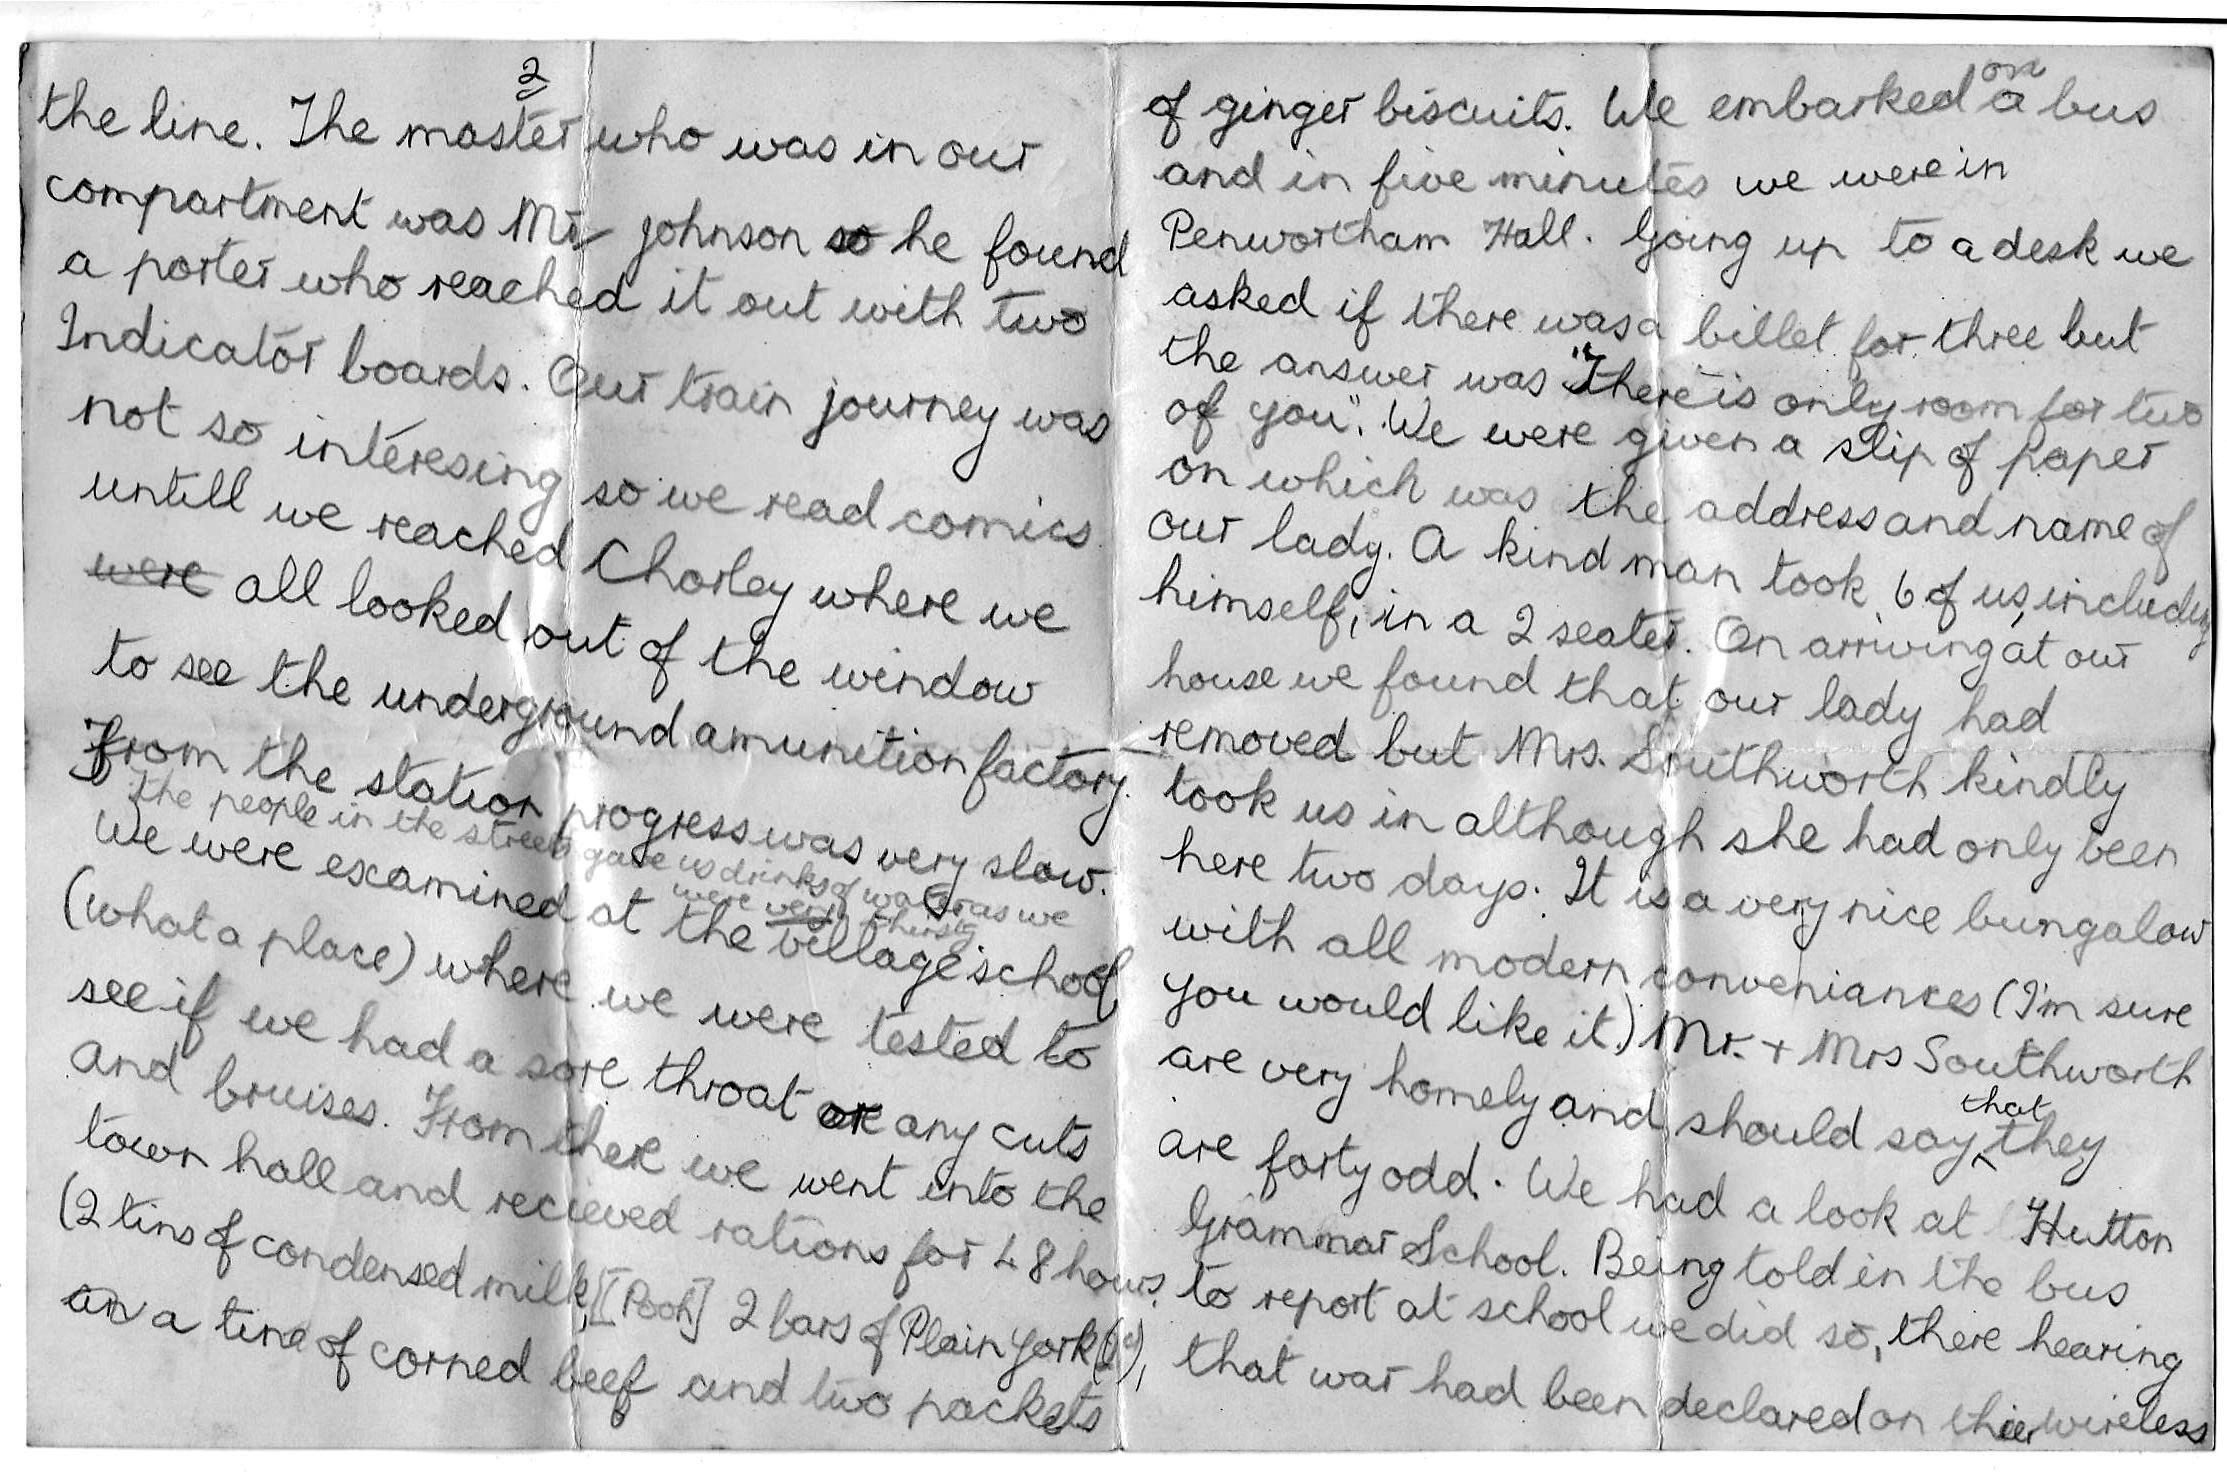 2
the line. The master who was in our
compartment was Mr Johnson so he found
a porter who reached it out with two
Indicator boards. Our train journey was
not so interesing so we read comics
untill we reached Chorley where we
were all looked out of the window
to see the underground amunition factory.
From the station progress was very slow.
The people in the streets gave us drinks of water as we
were very thirsty
We were examined at the village school
(what a place) where we were tested to
see if we had a sore throat or any cuts
and bruises. From there we went into the
town hall and recieved rations for 48 hours.
(2 tins of condensed milk, [Pooh] 2 bars of Plain York
an a tine of corned beef and two packets
of ginger biscuits. We embarked on a bus
and in five minutes we were in
Penwortham Hall. Going up to a desk we
asked if there was a billet for three but
the answer was "There is only room for two
of you". We were given a slip of paper
on which was the address and name of
our lady. A kind man took 6 of us, including
himself, in a 2 seater. On arriving at our
house we found that our lady had
removed but Mrs. Southworth kindly
took us in although she had only been
here two days. It is a very nice bungalow
with all modern conveniances (I'm sure
you would like it.) Mr. + Mrs Southworth
are very homely and should say that they
are forty odd. We had a look at Hutton
Grammar School. Being told in the bus
to report at school we did so, there hearing
that war had been declared on thier wireless